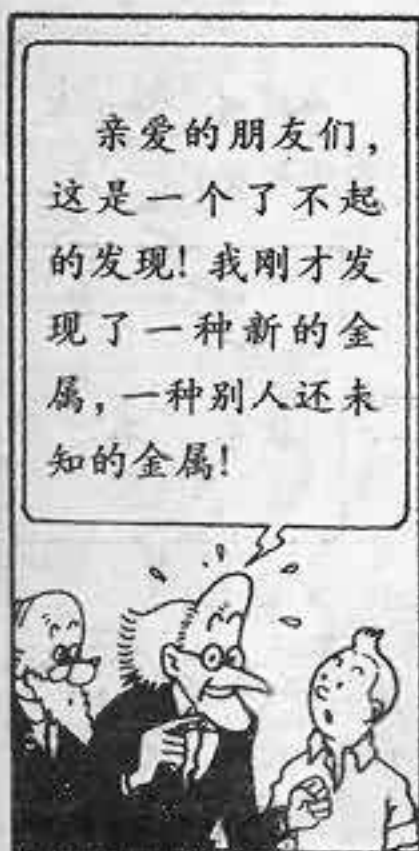 亲爱的朋友们，
这是一个了不起
的发现！我刚才发
现了一种新的金
属，一种别人还未
知的金属！